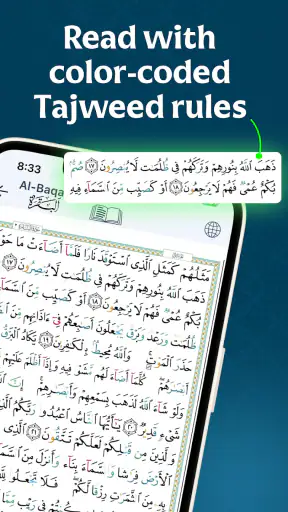 Read with
color-coded
Tajweed rules
ذَهَبَ ٱللَّهُ بِنُورِهِمْ وَتَرَكَهُمْ فِى ظُلُمَٰتٍ لَّا يُبْصِرُونَ ١٧ صُمٌّۢ
بُكْمٌ عُمْىٌ فَهُمْ لَا يَرْجِعُونَ ١٨ أَوْ كَصَيِّبٍ مِّنَ ٱلسَّمَآءِ فِيهِ
8:33
Al-Baqa
مَثَلُهُمْ كَمَثَلِ ٱلَّذِى ٱسْتَوْقَدَ نَارًا فَلَمَّآ أَضَآءَتْ مَا حَوْ
ذَهَبَ ٱللَّهُ بِنُورِهِمْ وَتَرَكَهُمْ فِى ظُلُمَٰتٍ لَّا يُبْصِرُونَ ١٧
بُكْمٌ عُمْىٌ فَهُمْ لَا يَرْجِعُونَ ١٨ أَوْ كَصَيِّبٍ مِّنَ ٱلسَّمَآءِ
ظُلُمَٰتٌ وَرَعْدٌ وَبَرْقٌ يَجْعَلُونَ أَصَٰبِعَهُمْ فِىٓ ءَاذَانِهِم
حَذَرَ ٱلْمَوْتِ وَٱللَّهُ مُحِيطٌۢ بِٱلْكَٰفِرِينَ ١٩ يَكَادُ ٱلْبَرْقُ
أَبْصَٰرَهُمْ كُلَّمَآ أَضَآءَ لَهُم مَّشَوْا۟ فِيهِ وَإِذَآ أَظْلَمَ عَلَيْهِمْ
وَلَوْ شَآءَ ٱللَّهُ لَذَهَبَ بِسَمْعِهِمْ وَأَبْصَٰرِهِمْ إِنَّ ٱللَّهَ
شَىْءٍ قَدِيرٌ ٢٠ يَٰٓأَيُّهَا ٱلنَّاسُ ٱعْبُدُوا۟ رَبَّكُمُ
وَٱلَّذِينَ مِن قَبْلِكُمْ لَعَلَّكُمْ تَتَّقُونَ ٢١
ٱلْأَرْضَ فِرَٰشًا وَٱلسَّمَآءَ بِنَآءً وَأَنزَلَ
بِهِۦ مِنَ ٱلثَّمَرَٰتِ رِزْقًا لَّكُمْ فَلَا تَجْعَلُوا۟
فِى رَيْبٍ مِّمَّا